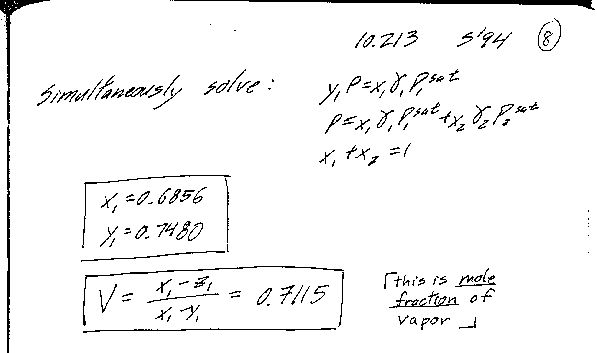 10.213 S'94 8
Simultaneously solve: y₁P=x₁γ₁P₁ˢᵃᵗ
P=x₁γ₁P₁ˢᵃᵗ+x₂γ₂P₂ˢᵃᵗ
x₁+x₂=1
x₁=0.6856
y₁=0.7480
V = (x₁-z₁)/(x₁-y₁) = 0.7115
[this is mole
fraction of
vapor]